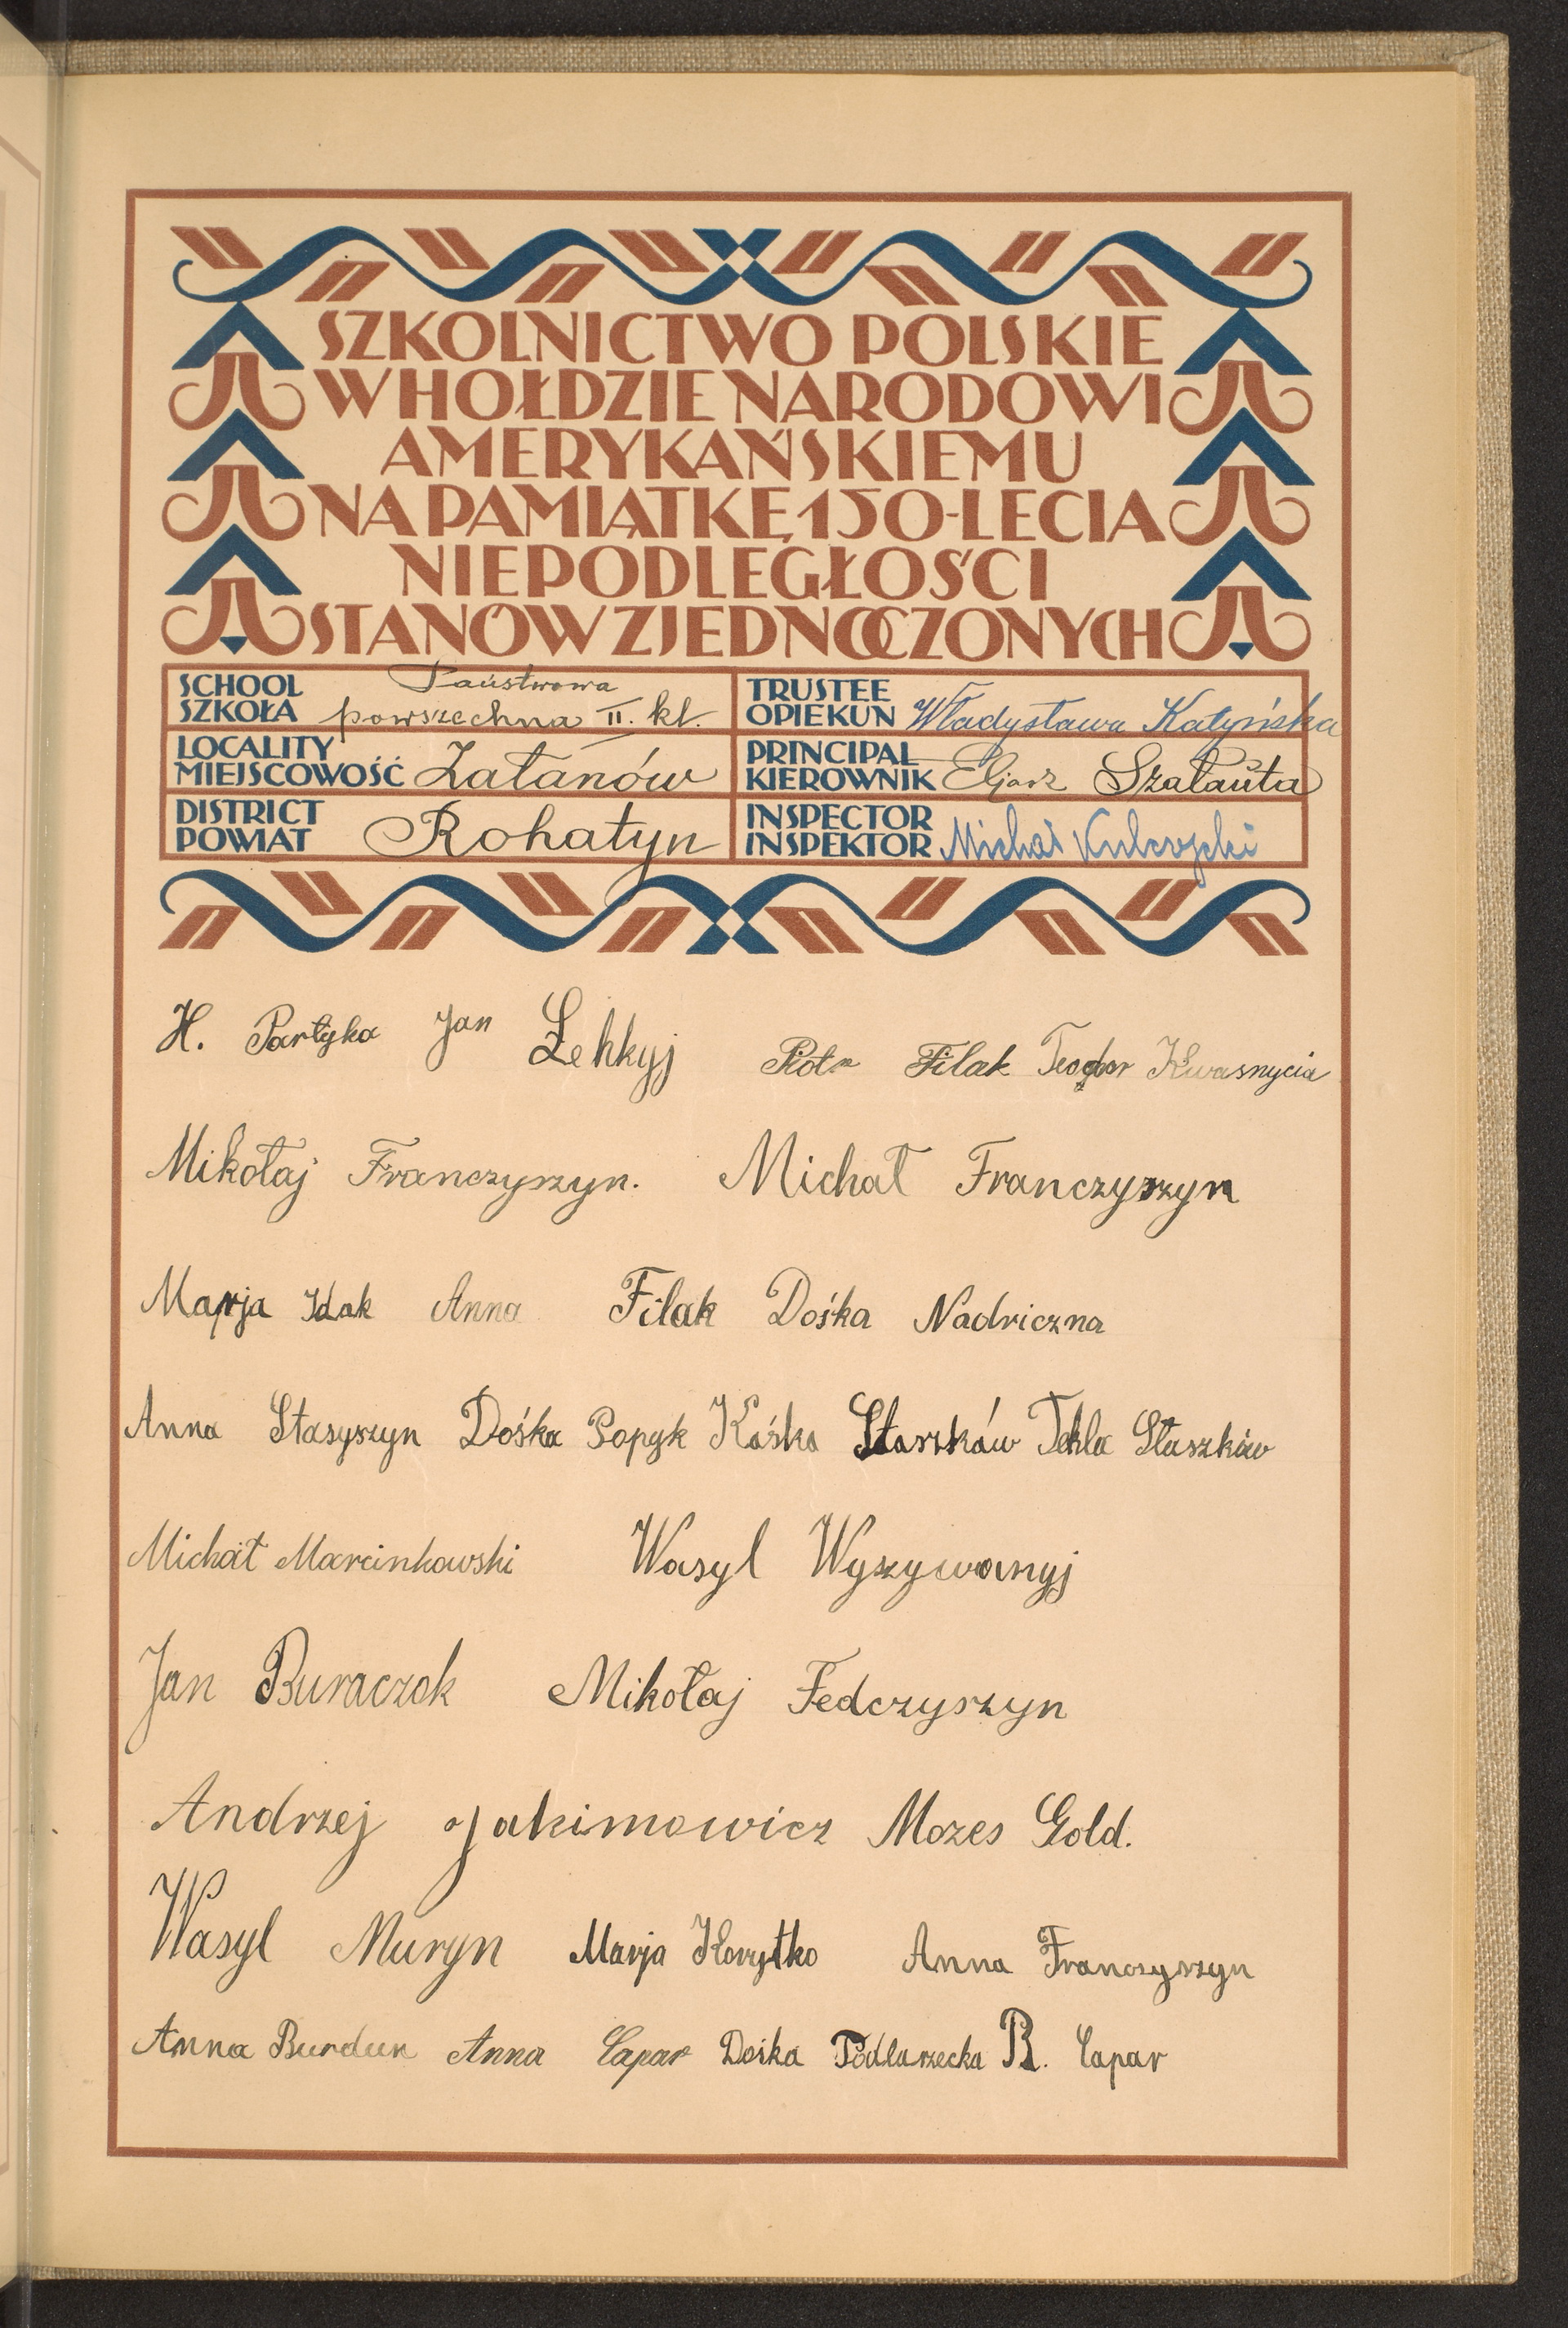 SZKOLNICTWO POLSKIE
W HOŁDZIE NARODOWI
AMERYKAŃSKIEMU
NA PAMIĄTKĘ 150-LECIA
NIEPODLEGŁOŚCI
STANÓW ZJEDNOCZONYCH
SCHOOL
SZKOŁA
Państwowa
powszechna II. kl.
TRUSTEE
OPIEKUN
Władysława Katyńska
LOCALITY
MIEJSCOWOŚĆ
Załanów
PRINCIPAL
KIEROWNIK
Eljasz Szałauta
DISTRICT
POWIAT
Rohatyn
INSPECTOR
INSPEKTOR
Michał
H. Partyka Jan Lehkyj Piotr Filak Teodor Kwasnycia
Mikołaj Franczyszyn. Michał Franczyszyn
Marja Idak Anna Filak Dośka Nadriczna
Anna Stasyszyn Dośka Popyk Kaśka Staszków Tekla Staszków
Michał Marcinkowski Wasyl Wyszywanyj
Jan Buraczok Mikołaj Fedczyszyn
Andrzej Jakimowicz Mozes Gold.
Wasyl Muryn Marja Korytko Anna Franczyszyn
Anna Burdun Anna Capar Dośka Podlarzecka R. Capar